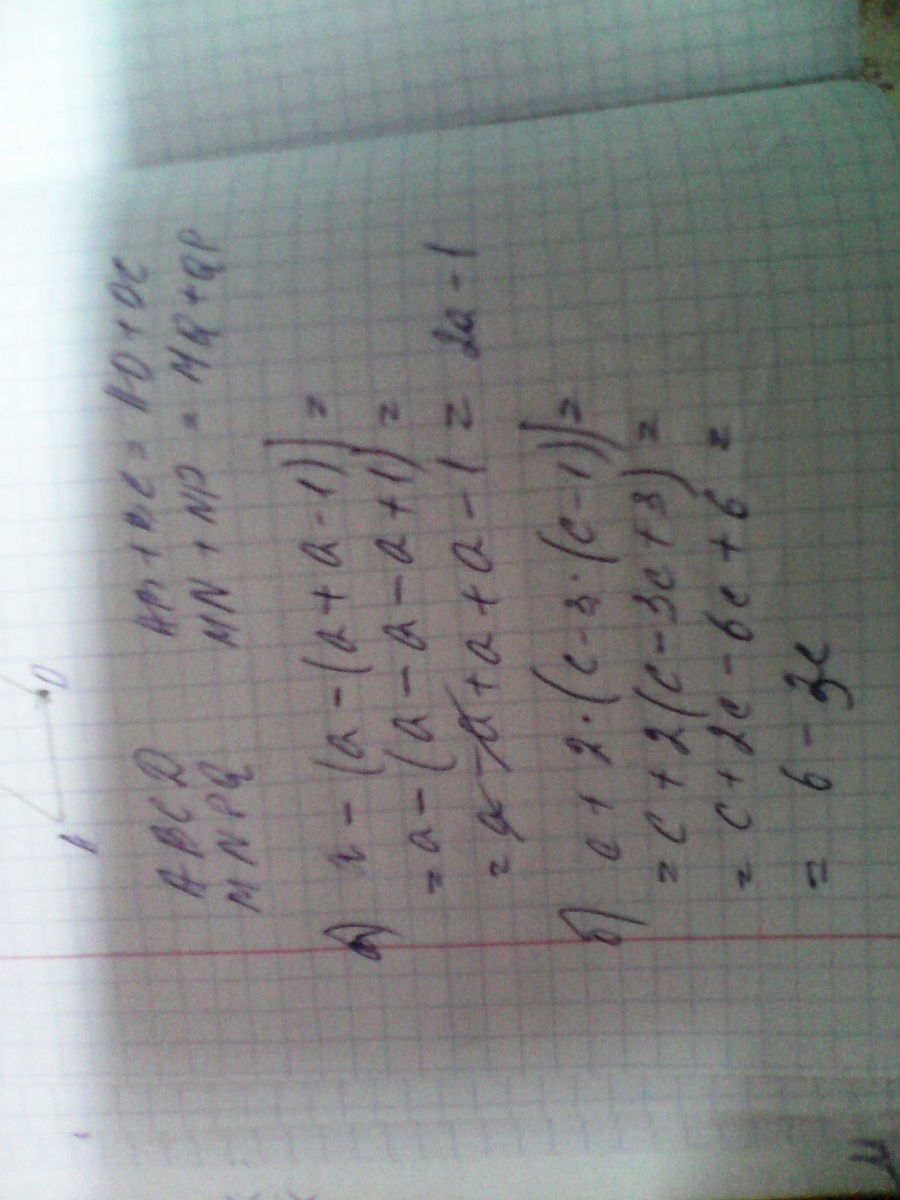 ABCD AB + BC = AD + DC
MNPQ MN + NP = MQ + QP
а) a - (a - (a + a - 1)) =
= a - (a - a - a + 1) =
= a - a + a + a - 1 = 2a - 1
б) c + 2·(c - 3·(c - 1)) =
= c + 2(c - 3c + 3) =
= c + 2c - 6c + 6 =
= 6 - 3c